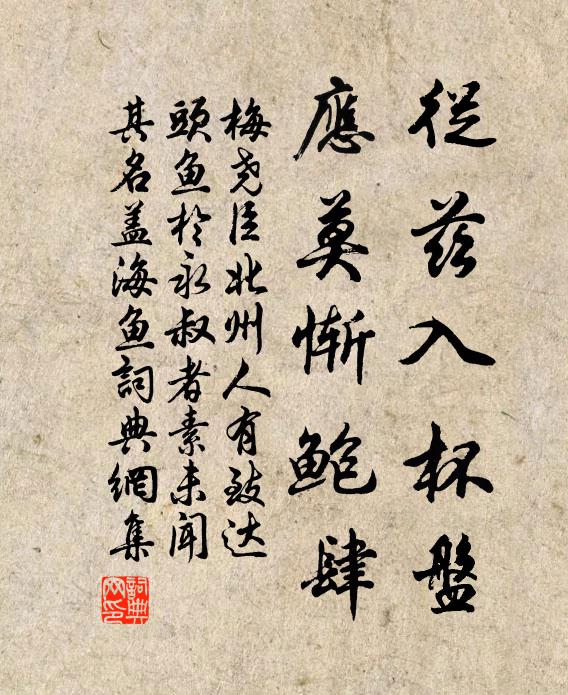 從茲入杯盤
應莫慚鮑肆
梅尧臣北州人有致达
頭鱼於永叔者素未闻
其名盖海鱼詞典網集
詞典网印